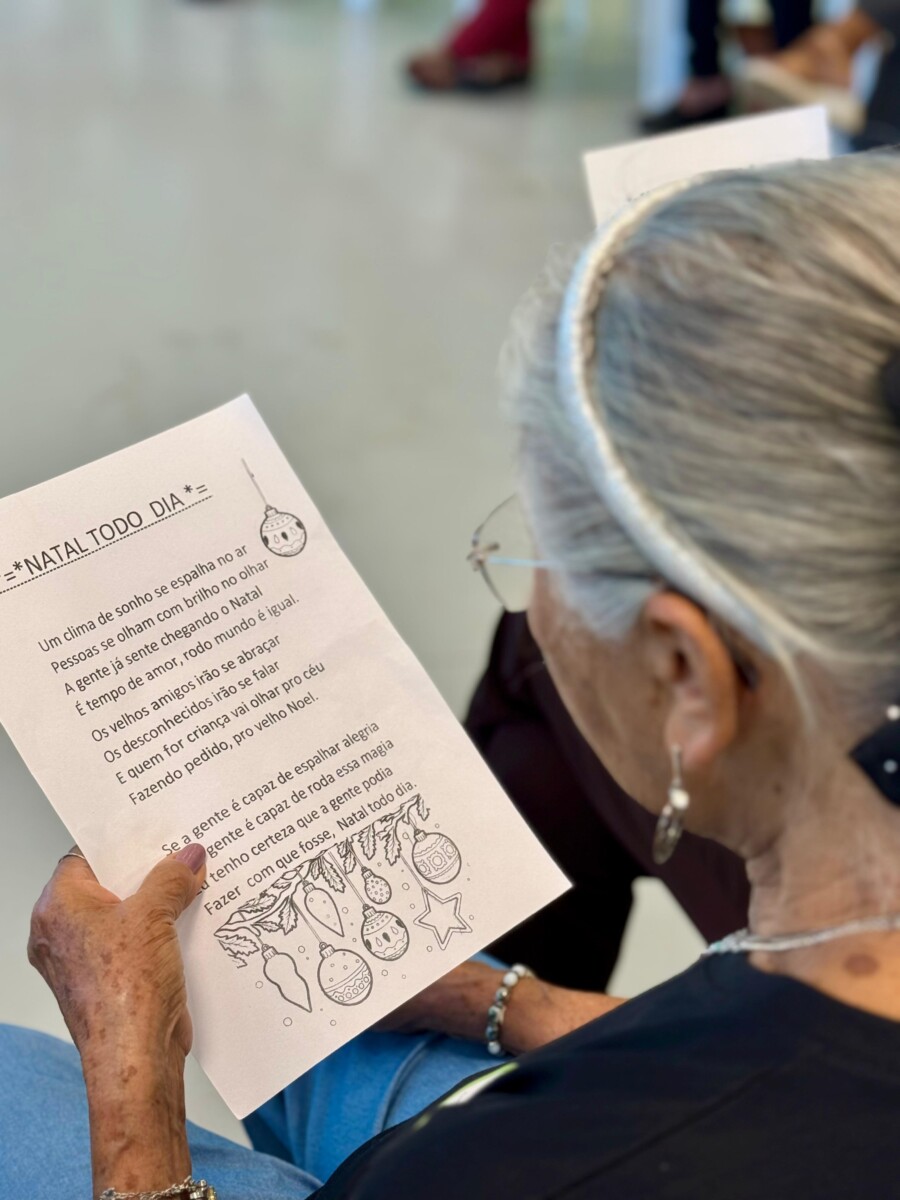 =*NATAL TODO DIA*=
Um clima de sonho se espalha no ar
Pessoas se olham com brilho no olhar
A gente já sente chegando o Natal
É tempo de amor, rodo mundo é igual.
Os velhos amigos irão se abraçar
Os desconhecidos irão se falar
E quem for criança vai olhar pro céu
Fazendo pedido, pro velho Noel.
Se a gente é capaz de espalhar alegria
gente é capaz de roda essa magia
tenho certeza que a gente podia
Fazer com que fosse, Natal todo dia.